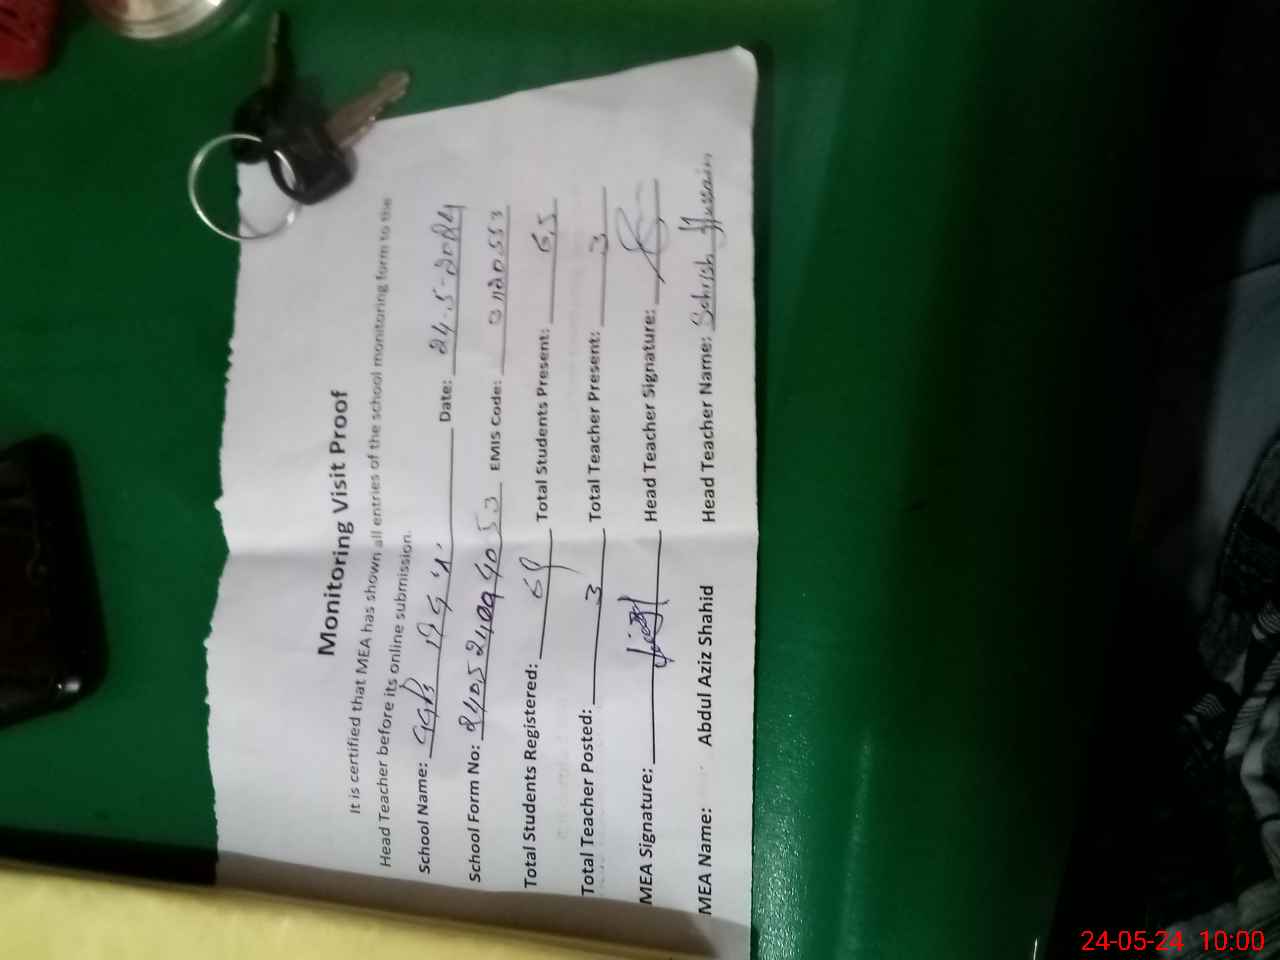 Monitoring Visit Proof
It is certified that MEA has shown all entries of the school monitoring form to the
Head Teacher before its online submission.
School Name: GGPS Date: 24-5-2024
School Form No: EMIS Code:
Total Students Registered: 69 Total Students Present: 65
Total Teacher Posted: 3 Total Teacher Present: 3
MEA Signature: Head Teacher Signature:
MEA Name: Abdul Aziz Shahid Head Teacher Name: Sehrish Hussain
24-05-24 10:00